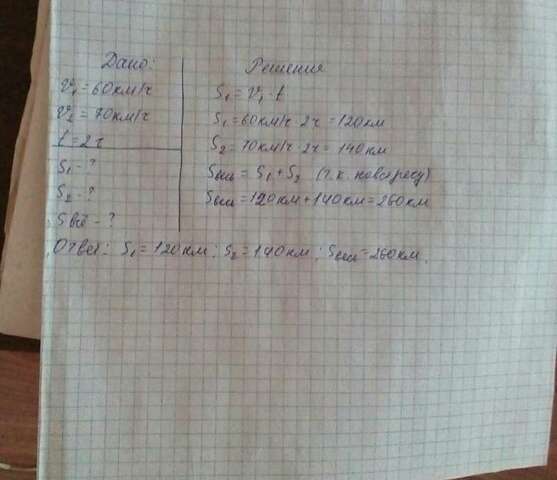 Дано:
V₁ = 60 км/ч
V₂ = 70 км/ч
t = 2 ч
S₁ - ?
S₂ - ?
S - ?
Решения
S₁ = V₁ · t
S₁ = 60 км/ч · 2ч = 120 км
S₂ = 70 км/ч · 2ч = 140 км
= S₁ + S₂ (т.к.
= 120 км + 140 км = 260 км
Ответ: S₁ = 120 км; S₂ = 140 км; = 260 км.